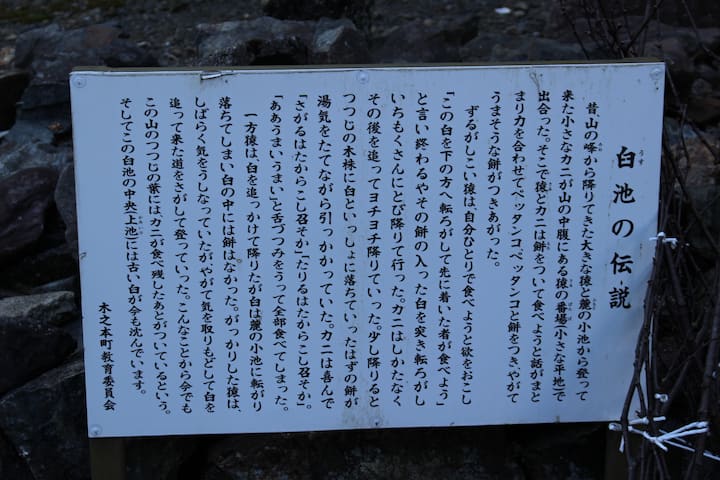 臼池の伝説
うす
昔、山の峰から降りてきた大きな猿と麓の小池から登って
来た小さなカニが山の中腹にある猿の番場(小さな平地)で
出合った。そこで猿とカニは餅をついて食べようと話がまと
まり力を合わせてペッタンコ、ペッタンコと餅をつき、やがて
うまそうな餅がつきあがった。
ずるがしこい猿は、自分ひとりで食べようと欲をおこし
「この臼を下の方へ転ろがして先に着いた者が食べよう」
と言い終わるやその餅の入った臼を突き転ろがし
いちもくさんにとび降りて行った。カニはしかたなく
その後を追ってヨチヨチ降りていった。少し降りると
つつじの木株に臼といっしょに落ちていったはずの餅が
湯気をたてながら引っかかっていた。カニは喜んで
「さがるはたからこし召そか」「たりるはたからこし召そか。」
「ああうまいうまい」と舌づつみをうって全部食べてしまった。
一方猿は、臼を追っかけて降りたが臼は麓の小池に転がり
落ちてしまい臼の中には餅はなかった。がっかりした猿は、
しばらく気をうしなっていたがやがて気を取りもどして臼を
追って来た道をさがして登っていった。こんなことから今でも
この山のつつじの葉には、カニが食べ残したあとがついているという。
そしてこの臼池の中央(上池)には古い臼が今も沈んでいます。
木之本町教育委員会